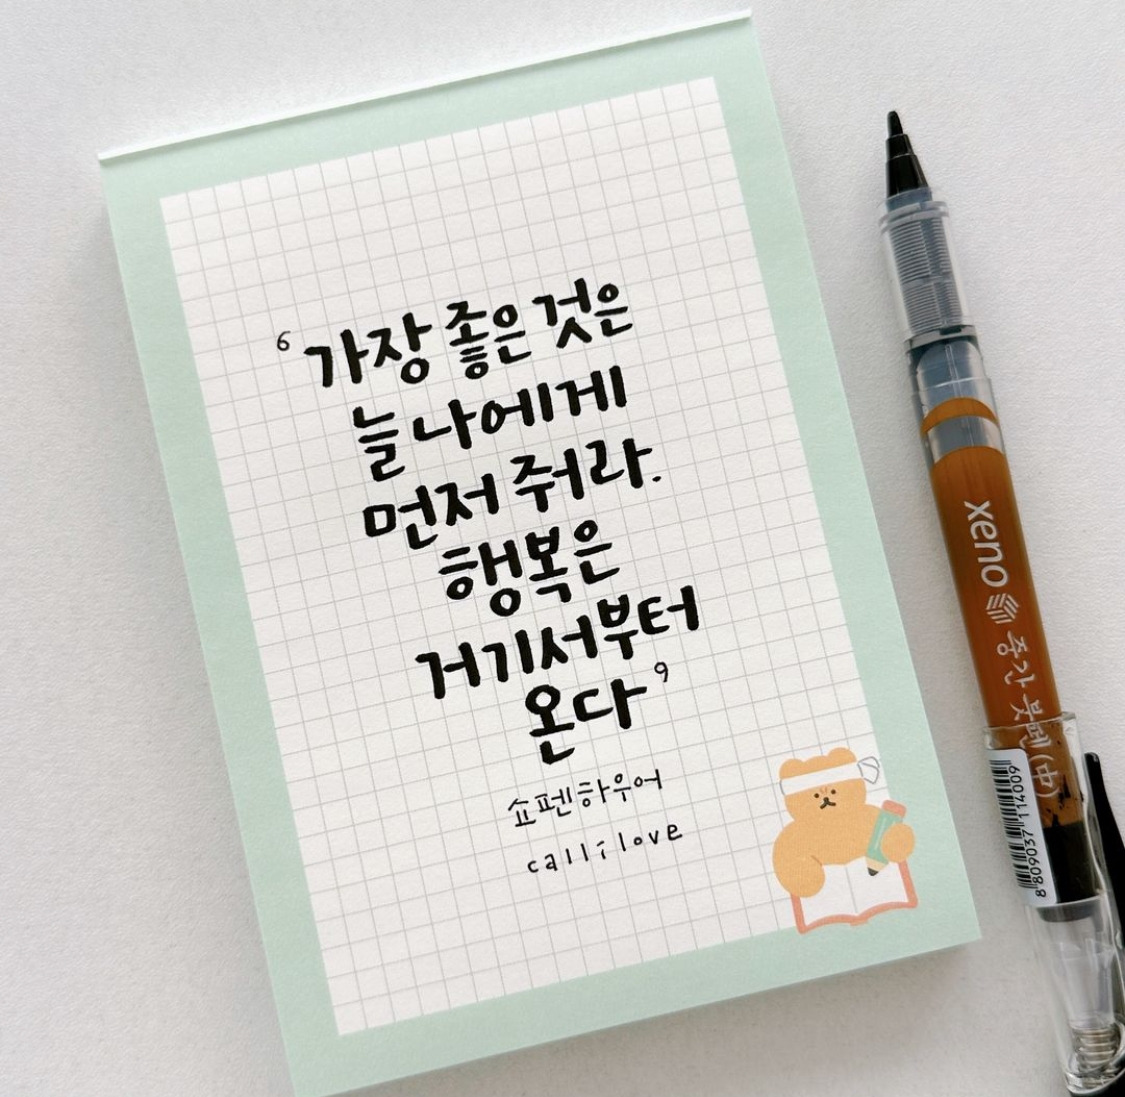 ‘가장 좋은 것은
늘 나에게
먼저 줘라.
행복은
거기서부터
온다’
쇼펜하우어
callilove
xeno 중간 붓펜(中)
8 809037 114009